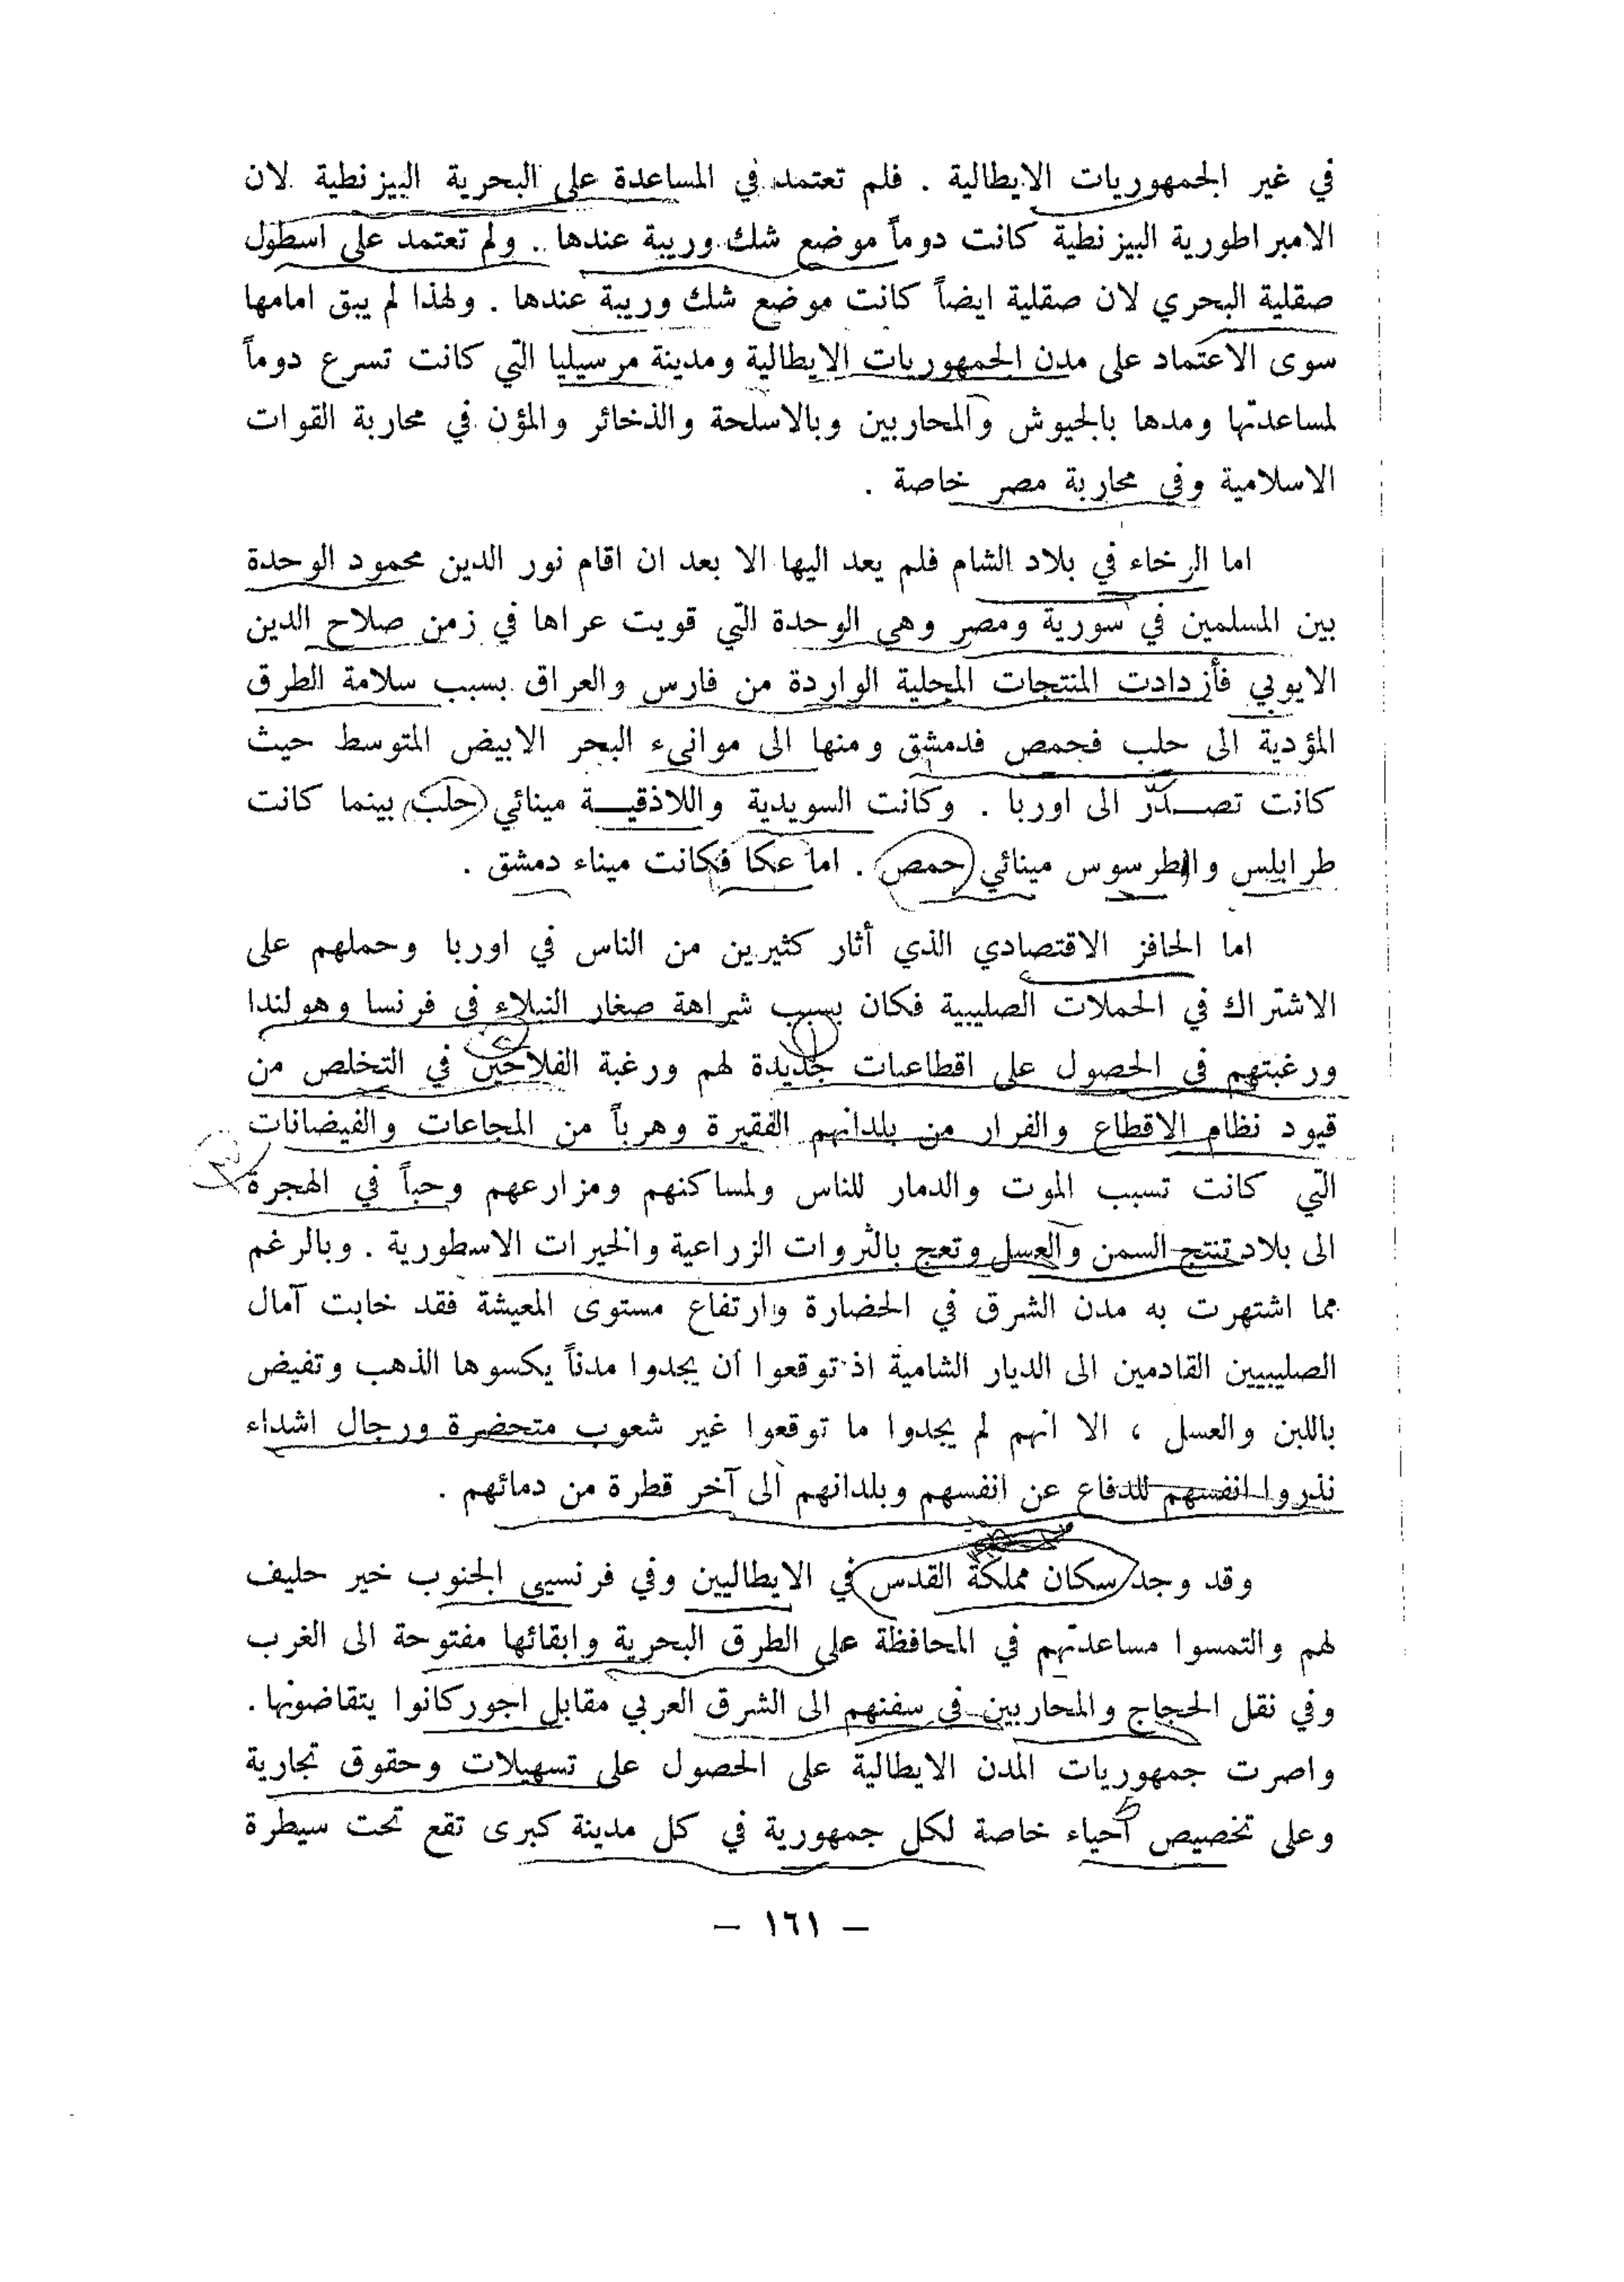 في غير الجمهوريات الايطالية . فلم تعتمد في المساعدة على البحرية البيزنطية لان
الامبراطورية البيزنطية كانت دوماً موضع شك وريبة عندها . ولم تعتمد على اسطول
صقلية البحري لان صقلية ايضاً كانت موضع شك وريبة عندها . ولهذا لم يبق امامها
سوى الاعتماد على مدن الجمهوريات الايطالية ومدينة مرسيليا التي كانت تسرع دوماً
لمساعدتها ومدها بالجيوش والمحاربين وبالاسلحة والذخائر والمؤن في محاربة القوات
الاسلامية وفي محاربة مصر خاصة .
اما الرخاء في بلاد الشام فلم يعد اليها الا بعد ان اقام نور الدين محمود الوحدة
بين المسلمين في سورية ومصر وهي الوحدة التي قويت عراها في زمن صلاح الدين
الايوبي فأزدادت المنتجات المحلية الواردة من فارس والعراق بسبب سلامة الطرق
المؤدية الى حلب فحمص فدمشق ومنها الى موانىء البحر الابيض المتوسط حيث
كانت تصدّر الى اوربا . وكانت السويدية واللاذقية مينائي حلب بينما كانت
طرابلس والطرسوس مينائي حمص . اما عكا فكانت ميناء دمشق .
اما الحافز الاقتصادي الذي أثار كثيرين من الناس في اوربا وحملهم على
الاشتراك في الحملات الصليبية فكان بسبب شراهة صغار النبلاء في فرنسا وهولندا
ورغبتهم في الحصول على اقطاعات جديدة لهم ورغبة الفلاحين في التخلص من
قيود نظام الاقطاع والفرار من بلدانهم الفقيرة وهرباً من المجاعات والفيضانات
التي كانت تسبب الموت والدمار للناس ولمساكنهم ومزارعهم وحباً في الهجرة
الى بلاد تنتج السمن والعسل وتعج بالثروات الزراعية والخيرات الاسطورية . وبالرغم
مما اشتهرت به مدن الشرق في الحضارة وارتفاع مستوى المعيشة فقد خابت آمال
الصليبيين القادمين الى الديار الشامية اذ توقعوا أن يجدوا مدناً يكسوها الذهب وتفيض
باللبن والعسل ، الا انهم لم يجدوا ما توقعوا غير شعوب متحضرة ورجال اشداء
نذروا انفسهم للدفاع عن انفسهم وبلدانهم الى آخر قطرة من دمائهم .
وقد وجد سكان مملكة القدس في الايطاليين وفي فرنسيي الجنوب خير حليف
لهم والتمسوا مساعدتهم في المحافظة على الطرق البحرية وابقائها مفتوحة الى الغرب
وفي نقل الحجاج والمحاربين في سفنهم الى الشرق العربي مقابل اجور كانوا يتقاضونها .
واصرت جمهوريات المدن الايطالية على الحصول على تسهيلات وحقوق تجارية
وعلى تخصيص أحياء خاصة لكل جمهورية في كل مدينة كبرى تقع تحت سيطرة
— ١٦١ —